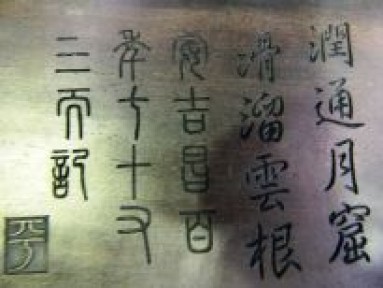 潤通月窟
滑溜雲根
安吉昌
年七十又
三記